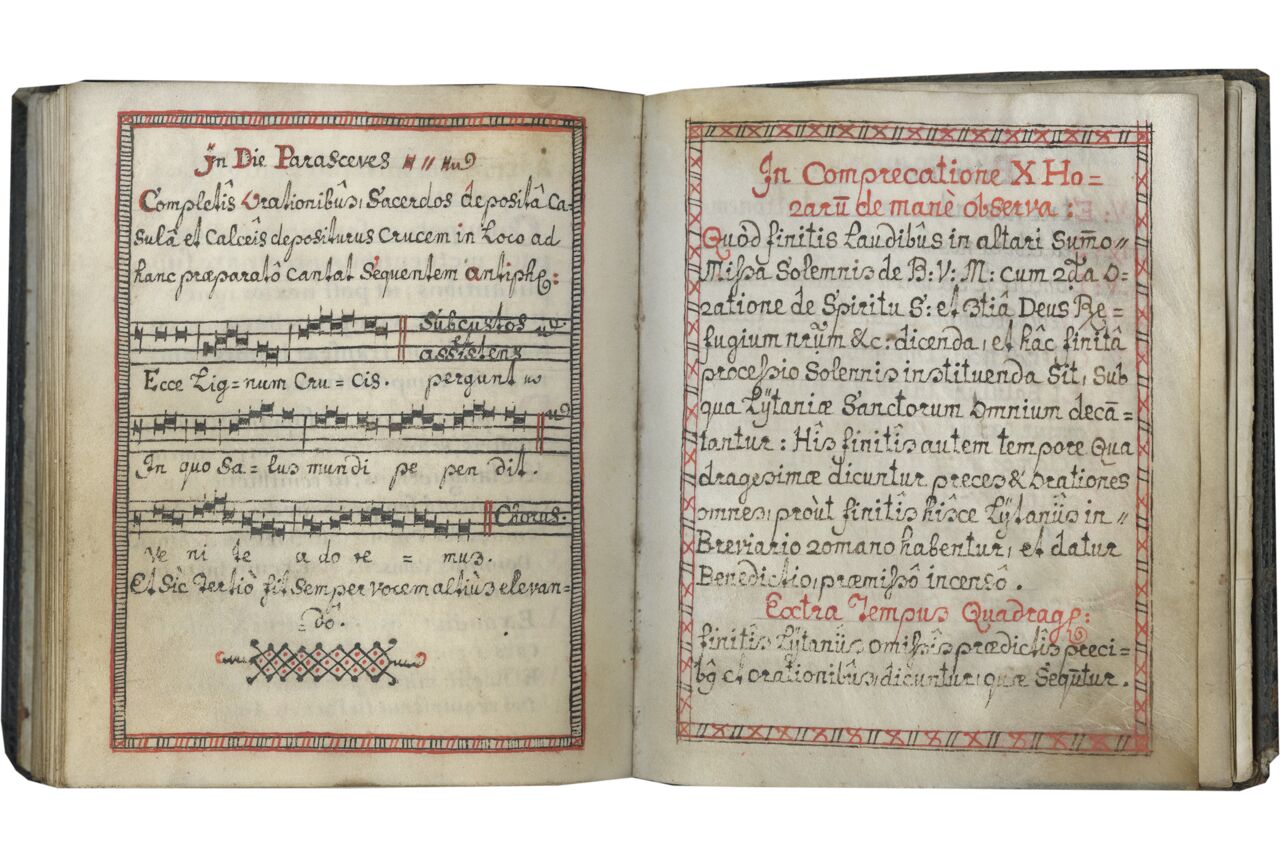 In Die Parasceves
Completîs Orationibûs, Sacerdos depositâ Ca-
sulâ et Calceîs depositurus Crucem in Loco ad
hanc præparatô cantat Sequentem antiphę:
Subcustos
et
assistens
Ecce Lig=num Cru=cis. pergunt
In quo Sa=lus mundi pe pen dit.
Chorus.
Ve ni te a do re = mus.
Et Sic Tertiò fit Semper vocem altiùs elevan=
=dô.
In Comprecatione X Ho=
rarū de manè observa:
Quòd finitis Laudibûs in altari Sum̄o
Missa Solemnis de B: V: M: cum 2da O=
ratione de Spiritu S: et 3tiâ Deus Re=
fugium nr̄um &c: dicenda, et hâc finitâ
processio Solennis instituenda Sit, Sub
qua Lÿtaniæ Sanctorum Omnium decā=
tantur: Hîs finitîs autem tempore Qua
dragesimæ dicuntur preces & Orationes
omnes, proùt finitîs hîsce Lÿtanijs in
Breviario Romano habentur, et datur
Benedictio, præmissô incensô.
Extra Tempus Quadrage:
finitîs Lÿtanijs omissîs prædictîs preci=
bę et orationibûs, dicuntur, quæ Seqūtur.